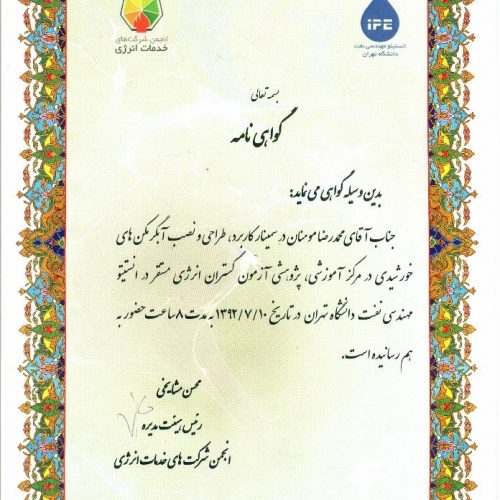 انجمن شرکت‌های
خدمات انرژی
IPE
انستیتو مهندسی نفت
دانشگاه تهران
بسمه تعالی
گواهی نامه
بدین وسیله گواهی می نماید:
جناب آقای محمدرضا مومنان در سمینار کاربرد، طراحی و نصب آبگرمکن های
خورشیدی در مرکز آموزشی، پژوهشی آزمون گستران انرژی مستقر در انستیتو
مهندسی نفت دانشگاه تهران در تاریخ ۱۳۹۲/۷/۱۰ به مدت ۸ ساعت حضور به
هم رسانیده است.
محسن مشایخی
رئیس هیئت مدیره
انجمن شرکت های خدمات انرژی